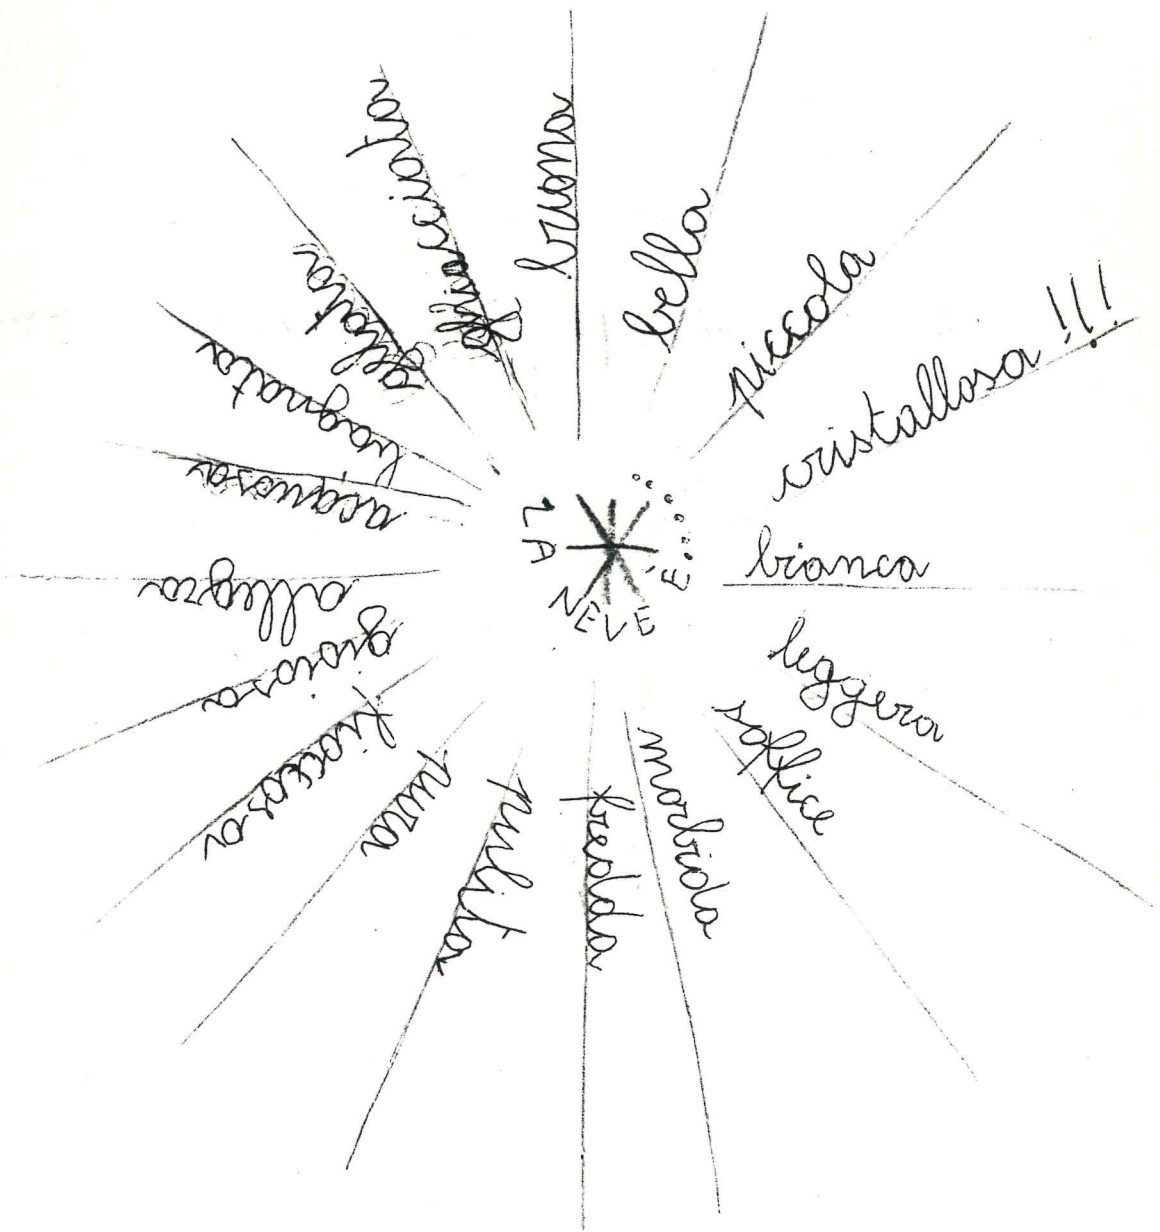 LA NEVE È.......
buona
bella
piccola
cristallosa !!!
bianca
leggera
soffice
morbida
fredda
pulita
pura
fioccosa
gioiosa
allegra
acquosa
bagnata
gelata
ghiacciata